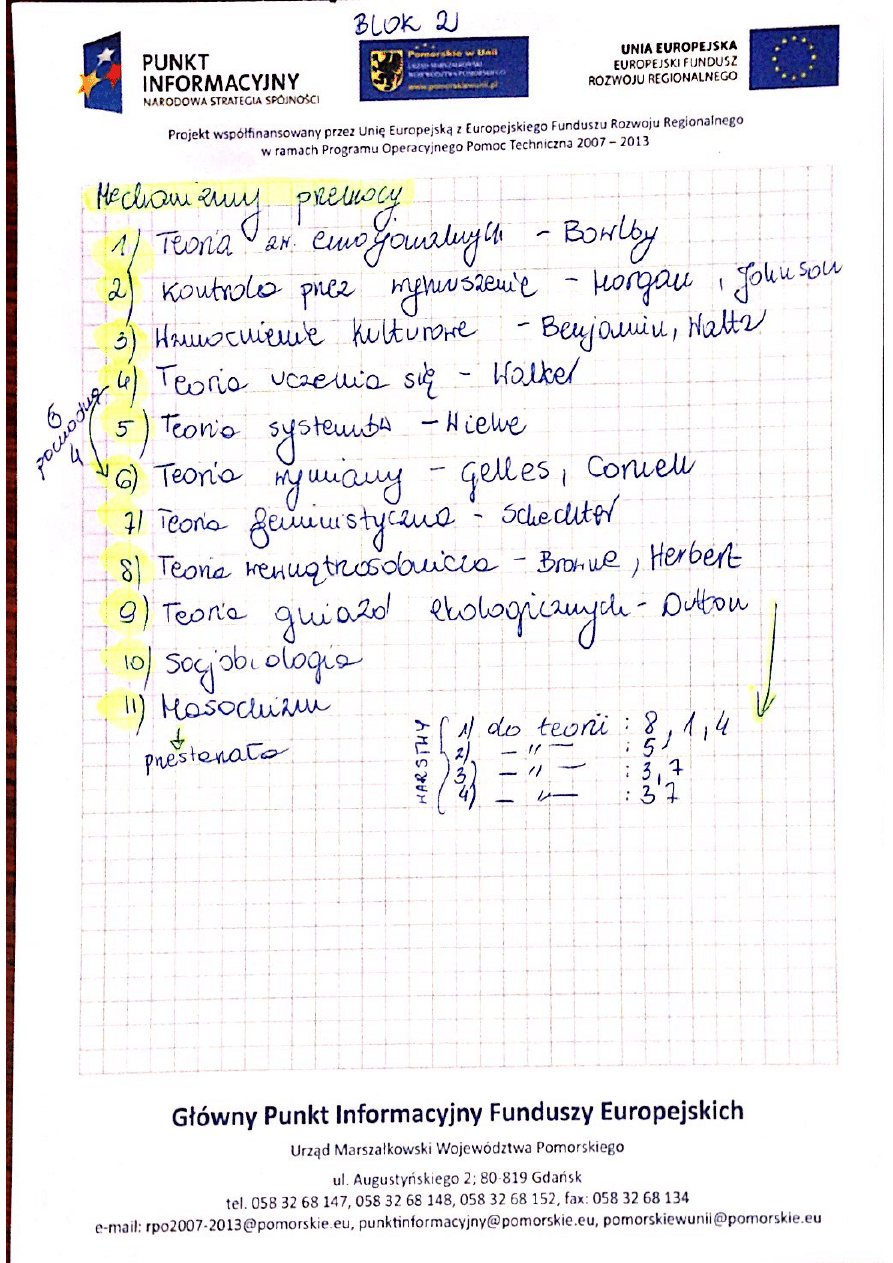 BLOK 2
PUNKT
INFORMACYJNY
NARODOWA STRATEGIA SPÓJNOŚCI
Pomorskie w Unii
URZĄD MARSZAŁKOWSKI
WOJEWÓDZTWA POMORSKIEGO
www.pomorskiewunii.pl
UNIA EUROPEJSKA
EUROPEJSKI FUNDUSZ
ROZWOJU REGIONALNEGO
Projekt współfinansowany przez Unię Europejską z Europejskiego Funduszu Rozwoju Regionalnego
w ramach Programu Operacyjnego Pomoc Techniczna 2007 – 2013
Mechanizmy przemocy
1) Teoria zw. emocjonalnych - Bowlby
2) Kontrola przez wymuszenie - Morgan, Johnson
3) Wzmocnienie kulturowe - Benjamin, Waltz
4) Teoria uczenia się - Walker
5) Teoria systemów - Wiehe
6) Teoria wymiany - Gelles, Cornell
6
pochodną
4
7) Teoria feministyczna - Schechter
8) Teoria wewnątrzosobnicza - Browne, Herbert
9) Teoria gniazd ekologicznych - Dutton
10) Socjobiologia
11) Masochizm
przestarzała
WARSTWY
1) do teorii : 8, 1, 4
2) - " - : 5
3) - " - : 3, 7
4) - " - : 3 7
Główny Punkt Informacyjny Funduszy Europejskich
Urząd Marszałkowski Województwa Pomorskiego
ul. Augustyńskiego 2; 80-819 Gdańsk
tel. 058 32 68 147, 058 32 68 148, 058 32 68 152, fax: 058 32 68 134
e-mail: rpo2007-2013@pomorskie.eu, punktinformacyjny@pomorskie.eu, pomorskiewunii@pomorskie.eu